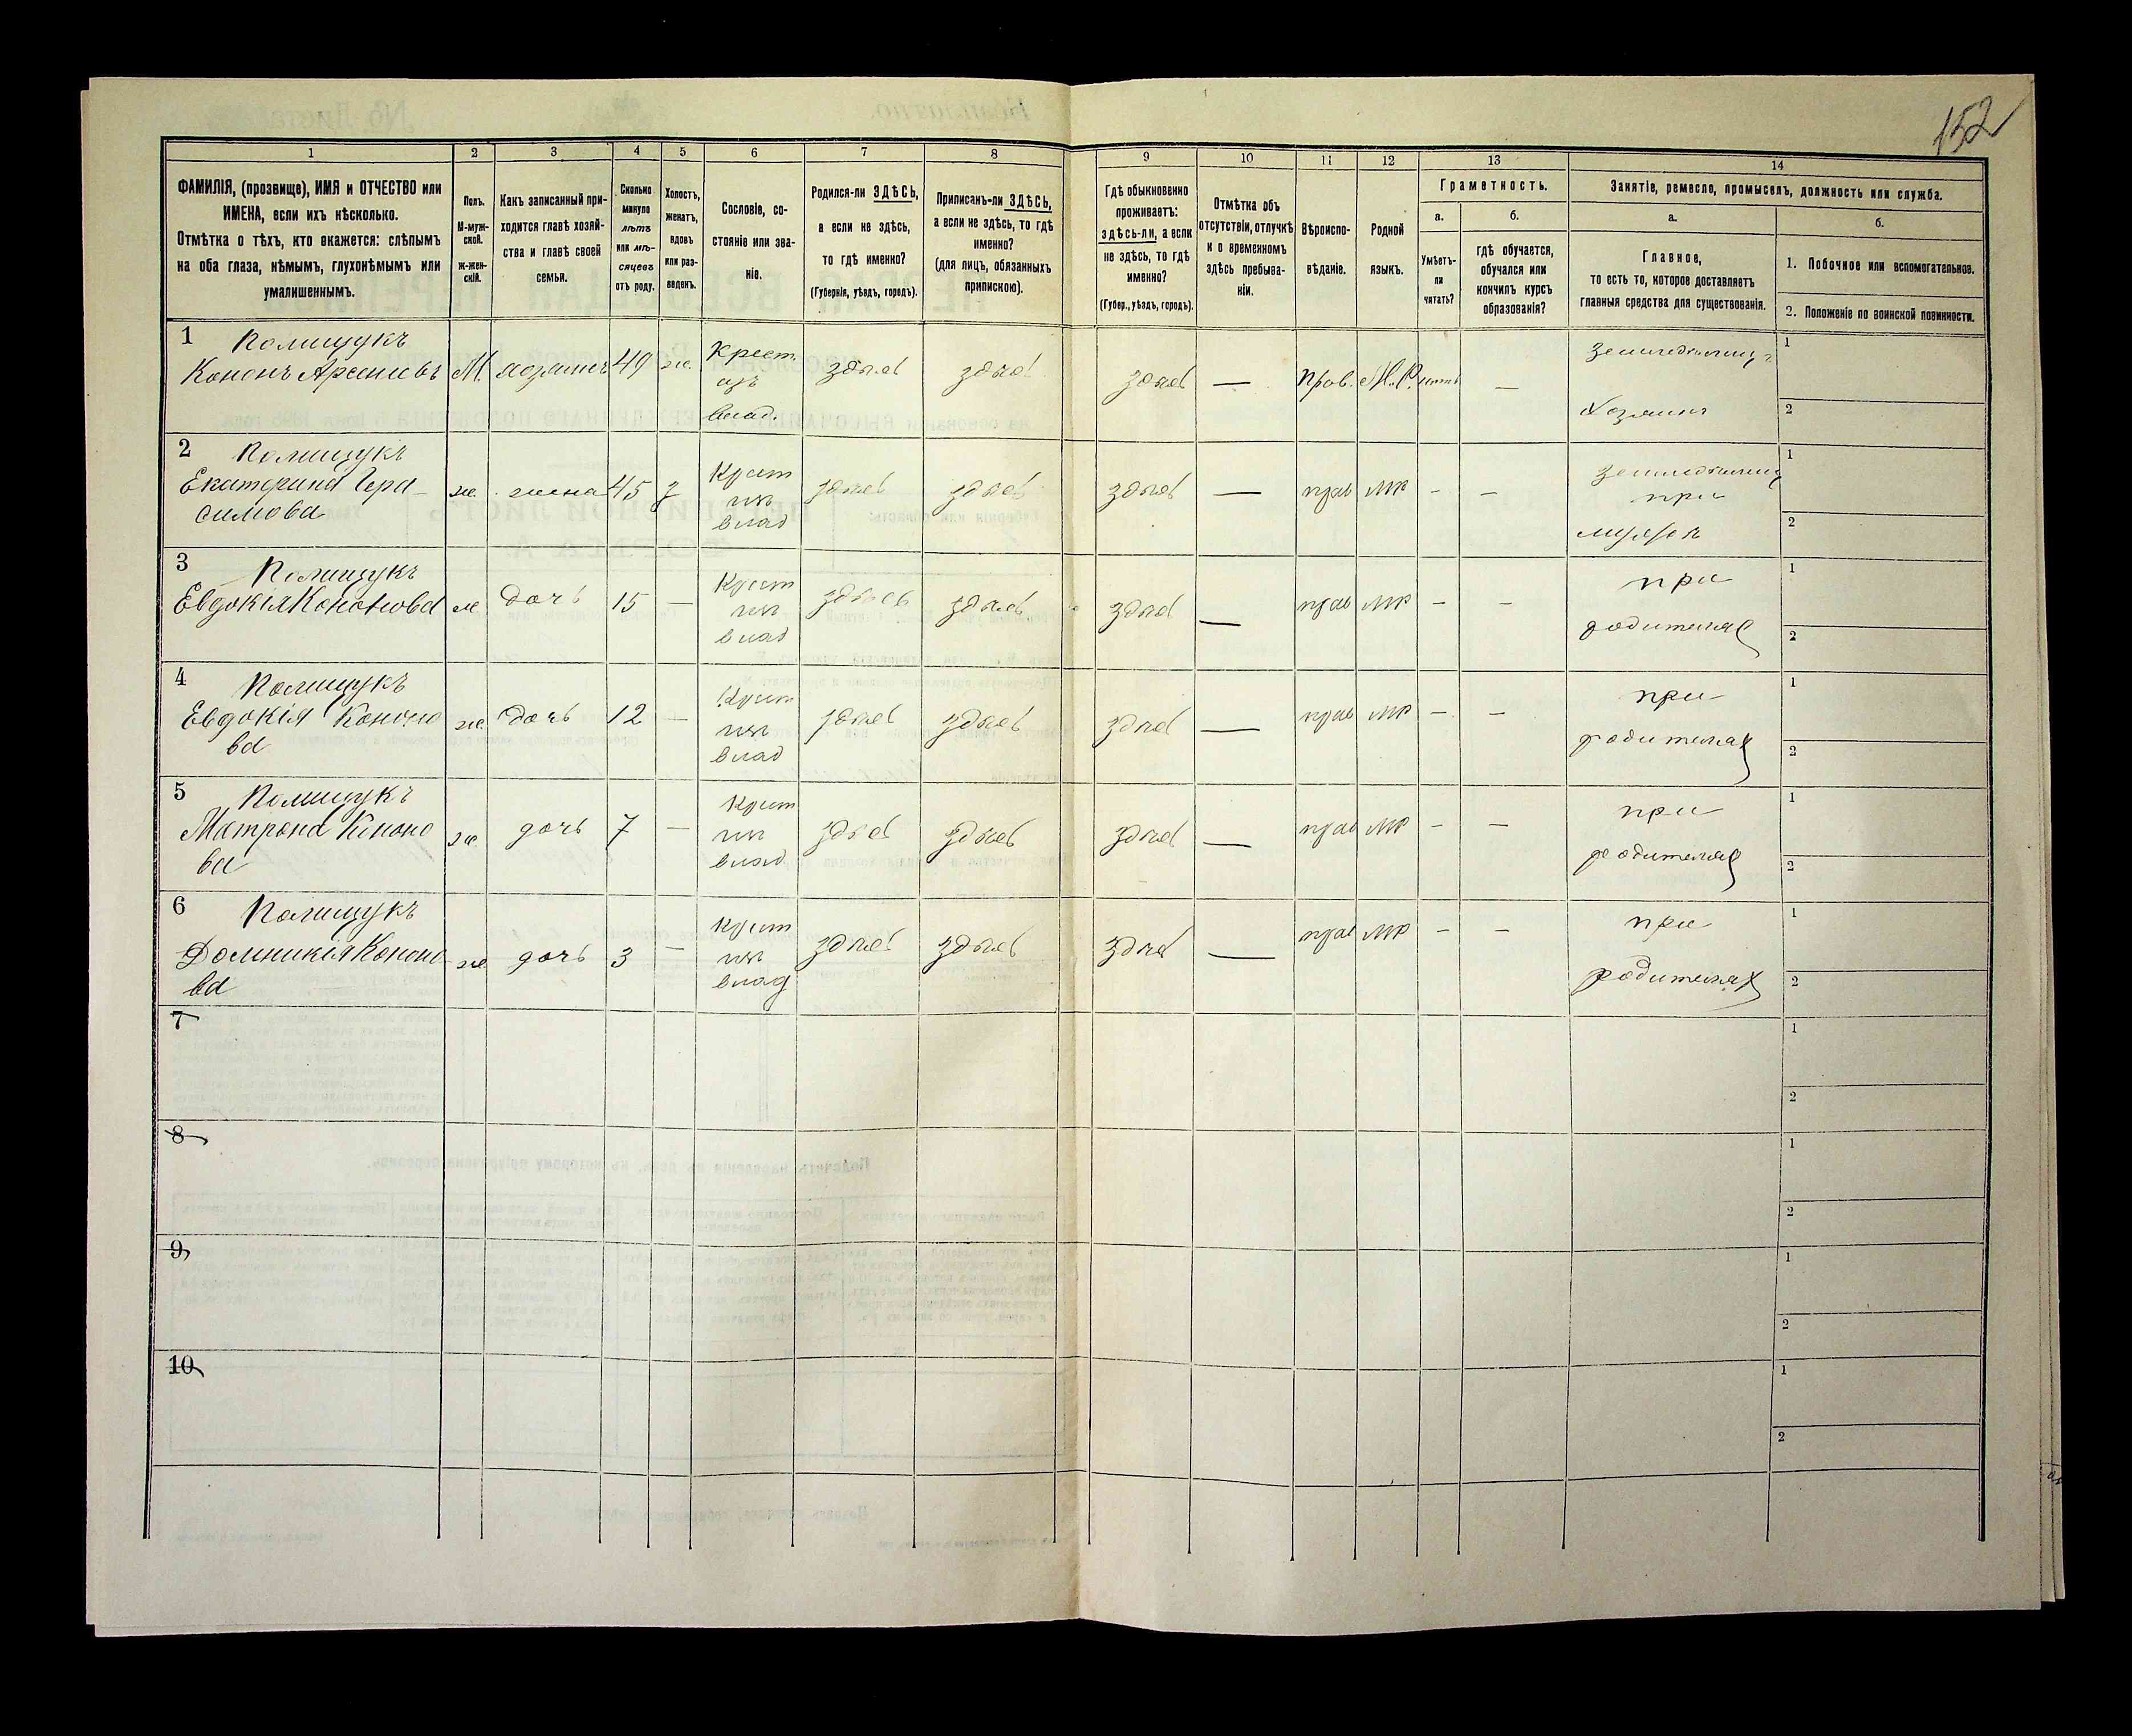 152
1 2 3 4 5 6 7 8 9 10 11 12 13 14
ФАМИЛІЯ, (прозвище), ИМЯ и ОТЧЕСТВО или
ИМЕНА, если ихъ нѣсколько.
Отмѣтка о тѣхъ, кто окажется: слѣпымъ
на оба глаза, нѣмымъ, глухонѣмымъ или
умалишеннымъ.
Полъ.
М-муж-
ской.
ж-жен-
скій.
Какъ записанный при-
ходится главѣ хозяй-
ства и главѣ своей
семьи.
Сколько
минуло
лѣтъ
или мѣ-
сяцевъ
отъ роду.
Холостъ,
женатъ,
вдовъ
или раз-
веденъ.
Сословіе, со-
стояніе или зва-
ніе.
Родился-ли ЗДѢСЬ,
а если не здѣсь,
то гдѣ именно?
(Губернія, уѣздъ, городъ).
Приписанъ-ли ЗДѢСЬ,
а если не здѣсь, то гдѣ
именно?
(для лицъ, обязанныхъ
припискою).
Гдѣ обыкновенно
проживаетъ:
здѣсь-ли, а если
не здѣсь, то гдѣ
именно?
(Губер., уѣздъ, городъ).
Отмѣтка объ
отсутствіи, отлучкѣ
и о временномъ
здѣсь пребыва-
ніи.
Вѣроиспо-
вѣданіе.
Родной
языкъ.
Грамотность.
а.
Умѣетъ-
ли
читать?
б.
гдѣ обучается,
обучался или
кончилъ курсъ
образованія?
Занятіе, ремесло, промыселъ, должность или служба.
а.
Главное,
то есть то, которое доставляетъ
главныя средства для существованія.
б.
1. Побочное или вспомогательное.
2. Положеніе по воинской повинности.
1 Полищукъ
Кононъ Арсеніевъ М. хозяинъ 49 ж. Крест. здѣсь здѣсь здѣсь — Прав. М.Р. —
влад.
Хозяинъ
1
2
2 Полищукъ
Екатерина Гера-
симова ж. жена 45 з Крест здѣсь здѣсь здѣсь — прав мр - —
влад
при
мужѣ
1
2
3 Полищукъ
Евдокія Кононова ж дочь 15 — Крест здѣсь здѣсь здѣсь — прав мр - -
влад
при
родителях
1
2
4 Полищукъ
Евдокія Кононо
ва ж. дочь 12 — Крест здѣсь здѣсь здѣсь — прав мр - —
влад
при
родителях
1
2
5 Полищукъ
Матрона Кононо
ва ж. дочь 7 — Крест здѣсь здѣсь здѣсь — прав мр - —
влад
при
родителях
1
2
6 Полищукъ
Домникія Кононо-
ва ж дочь 3 — Крест здѣсь здѣсь здѣсь — прав мр - —
влад
при
родителях
1
2
7
1
2
8
1
2
9
1
2
10
1
2